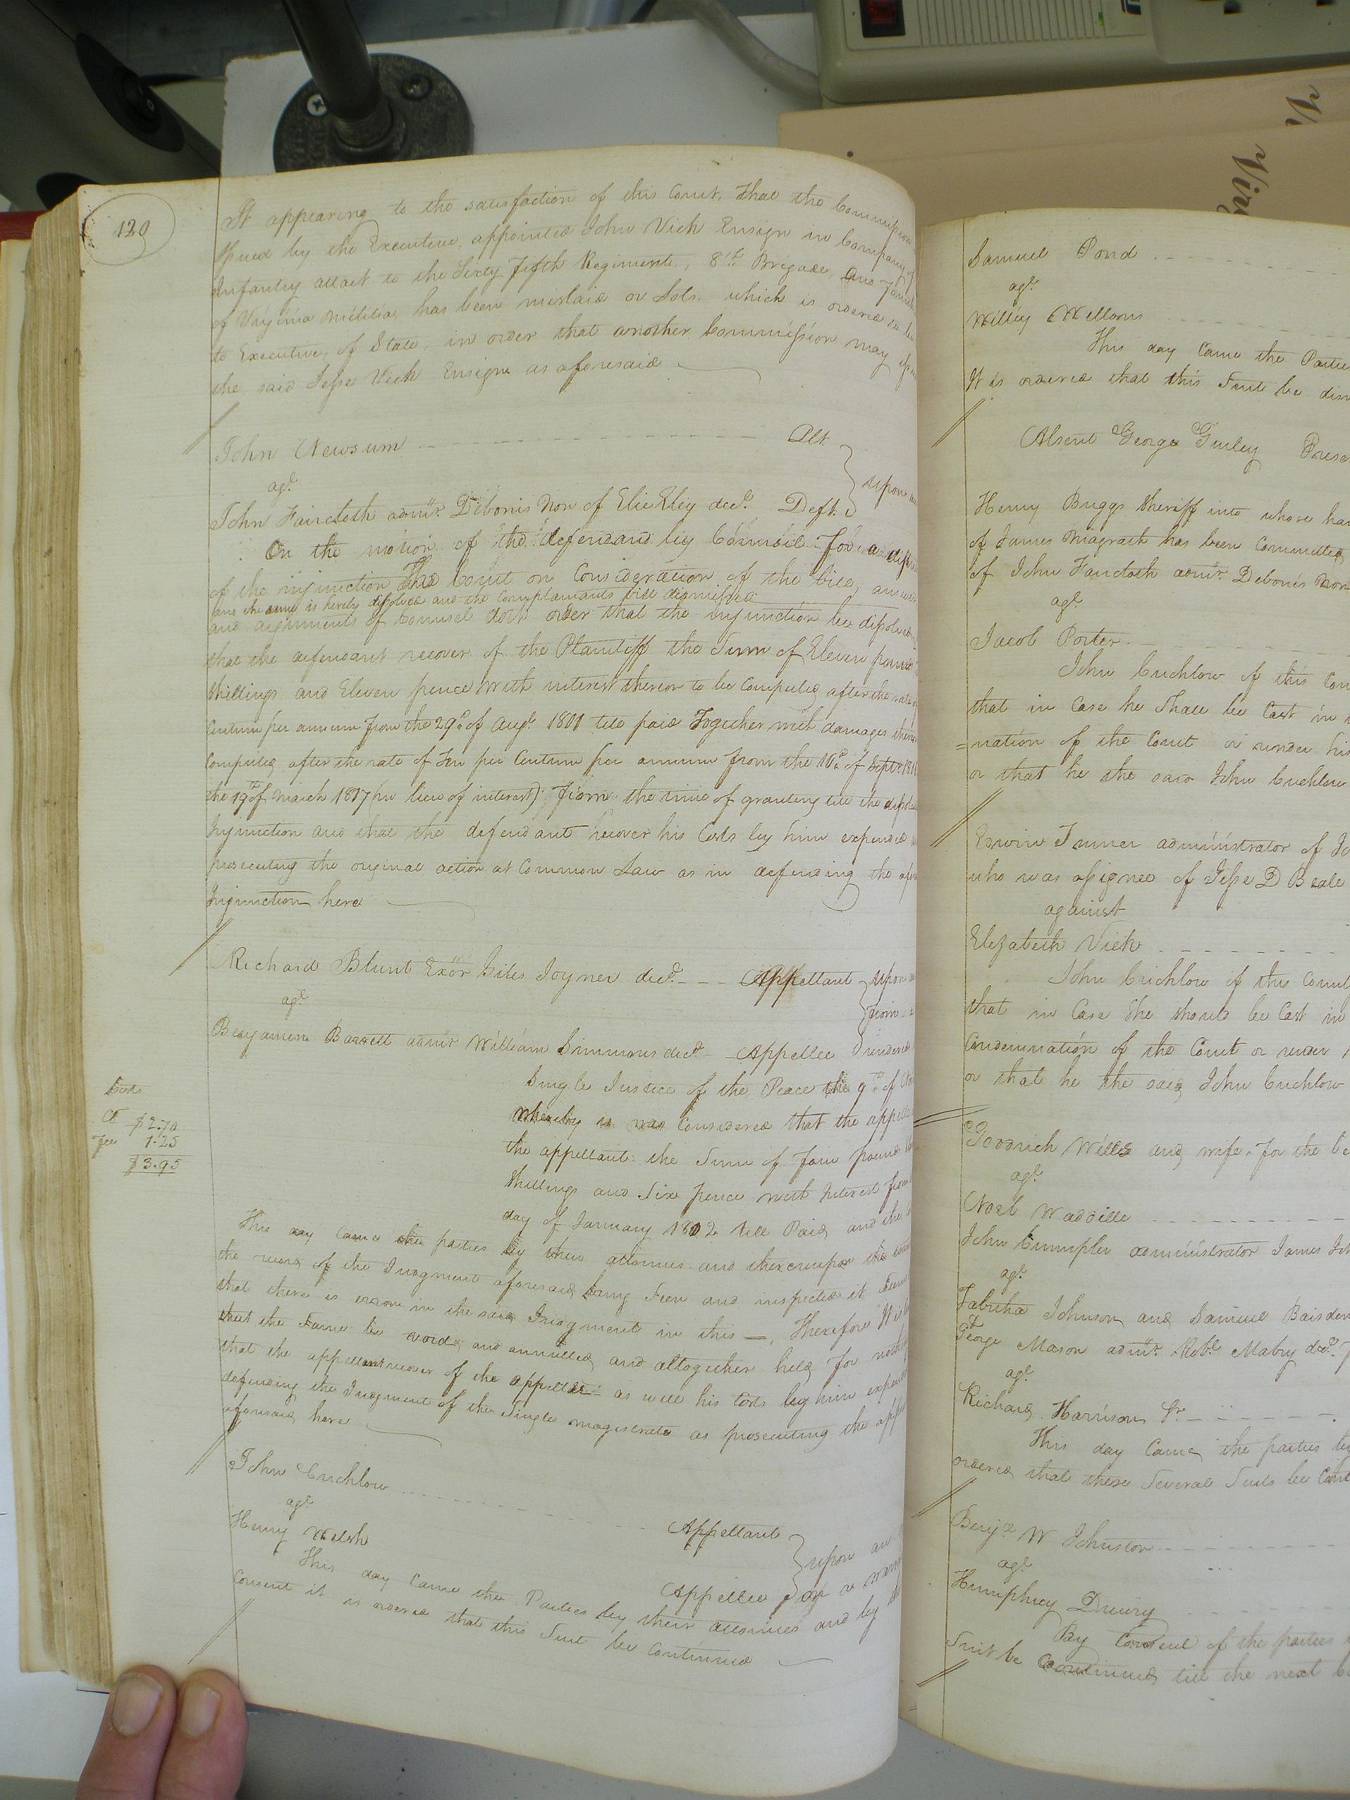 120
It appearing to the satisfaction of this Court, that the Commission
Issued by the Executive, appointed John Vick Ensign in Company of
Infantry attact to the Sixty fifth Regiment, 8th Brigade, and
of Virginia Militia, has been mislaid or Lots. which is ordered to be
to Executive, of State, in order that another Commission may
the said Jesse Vick Ensign as aforesaid
John Newsum Plt
agt
John Faircloth admr. Debonis Non of Elie Eley decd. Deft. upon
On the motion of the defendand by Counsil for a
of the injunction The Court on Consideration of the bill, answer
and the same is hereby disolved and the Complainants bill dismissed
and arguments of Counsel doth order that the injunction be disolved
that the defendant recover of the Plantiff the Sum of Eleven pounds
Shillings and Eleven pence with interest thereon to be Computed after the rate
Centum per annum from the 29th of Augt 1801 till paid Together with damages
Computed after the rate of Ten per Centum per annum from the 16th of Septr
the 19th of March 1817 in lieu of interest) from the time of granting till the
Injunction and that the defendant recover his Costs by him expended
prosecuting the original action at Common Law as in defending the
Injunction here
Richard Blunt Exor Giles Joyner decd. Appellant upon
agt from
Benjamin Barrett admr William Simmons decd. Appellee
Single Justice of the Peace the 9th of
whereby it was Considered that the appellee
the appellant the Sum of four pounds
Shillings and Six pence with Interest from
day of January 1802 till Paid and the
Cost
Cl $2.70
Fee 1.25
$3.95
This day came the parties by their attornies and thereupon the
the record of the Judgment aforesaid being Seen and inspected it
that there is error in the said Judgment in this —, Therefore It is
that the Same be void and annulled and altogether held for
that the appellant recover of the appellee as well his Costs by him expended
defending the Judgment of the Single magistrate as prosecuting the
aforesaid here
John Crichlow Appellant
agt upon an
Henry Welsh Appellee of a
This day Came the Parties by their attornies and by
Consent it is ordered that this Suit be Continued
Samuel Pond
agt
Willey Williams
This day Came the Parties
It is ordered that this Suit be
Absent George Gurley
Henry Briggs Sheriff into whose
of James Magrath has been Committed
of John Faircloth admr. Debonis Non
agt
Jacob Porter
John Crichlow of this
that in Case he Shall be Cast in
=nation of the Court or under his
or that he the said John Crichlow
Edwin Turner administrator of
who was assignee of Jesse D Beale
against
Elizabeth Vick
John Crichlow of this County
that in Case She should be Cast in
Condemnation of the Court or under
or that he the said John Crichlow
Goodrich Wills and wife for the
agt
Noel Waddille
John Crumpler administrator James
agt
Tabitha Johnson and Samuel Baisden
George Mason admr. Robt Mabry decd.
agt
Richard Harrison Sr
This day Came the parties by
ordered that these Several Suits be
Benja W Johnston
agt
Humphrey Drury
By Consent of the parties
Suit be Continued till the next